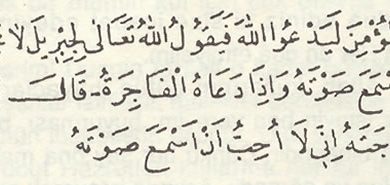 ؤْمِنَ لَيَدْعُوا اللهَ فَيَقُولُ اللهُ تَعَالٰى لِجِبْرِيلَ لَا
سْمَعَ صَوْتَهُ وَاِذَا دَعَاهُ الْفَاجِرَةُ - قَالَ
جَتَهُ اِنِّي لَا أُحِبُّ اَنْ اَسْمَعَ صَوْتَهُ